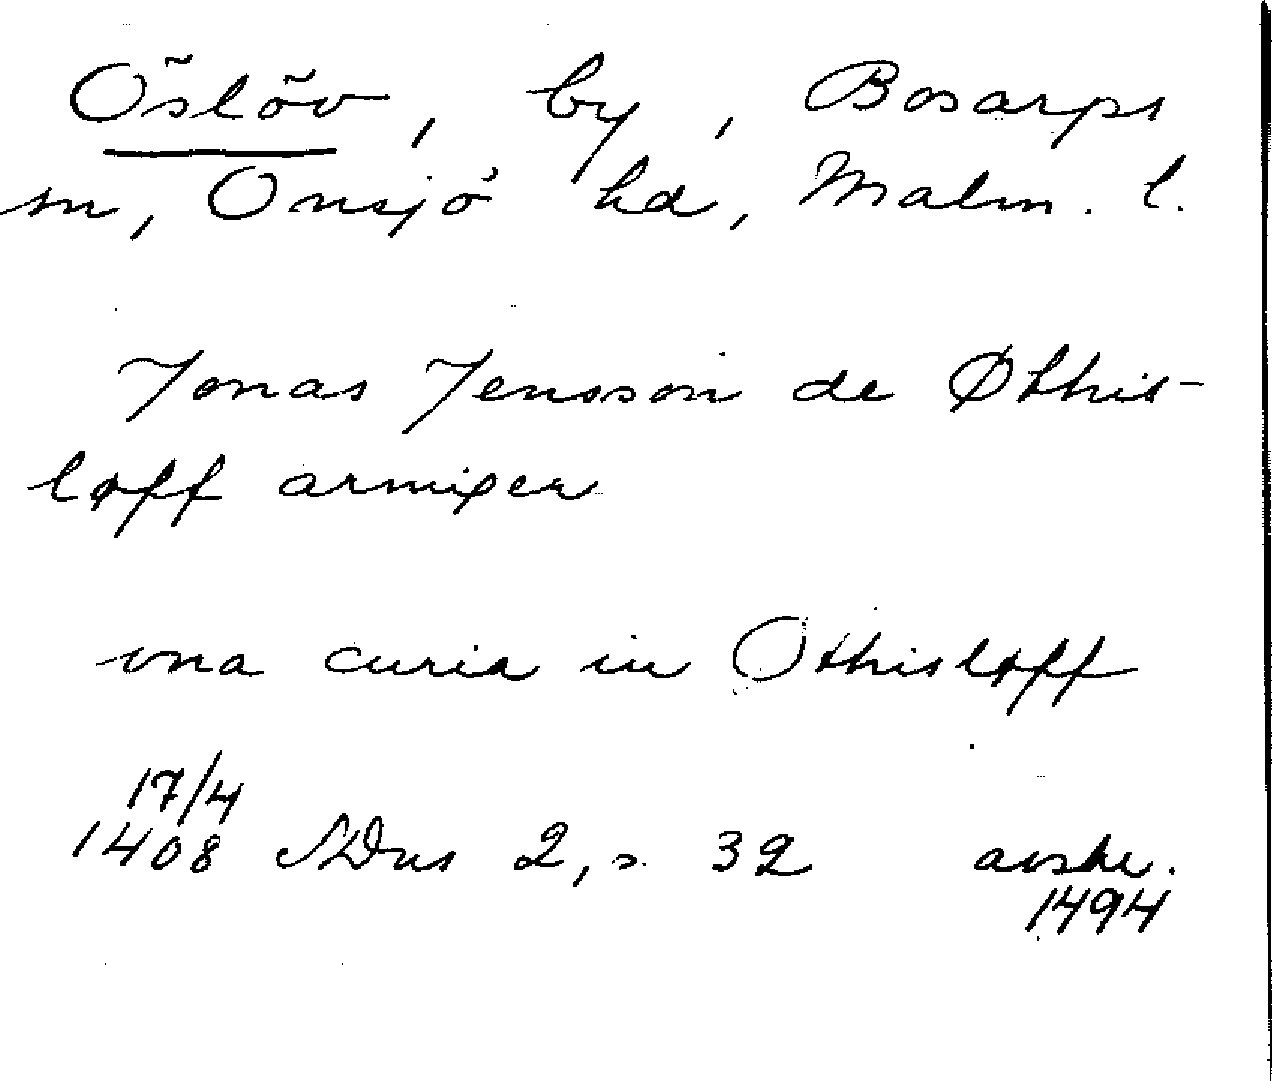 Öslöv, by, Bosarps
sn, Onsjö hd, Malm. l.
Jonas Jensson de Øthis-
løff armiger
vna curia in Othisløff
17/4
1408 SDns 2, s. 32 avskr.
1494